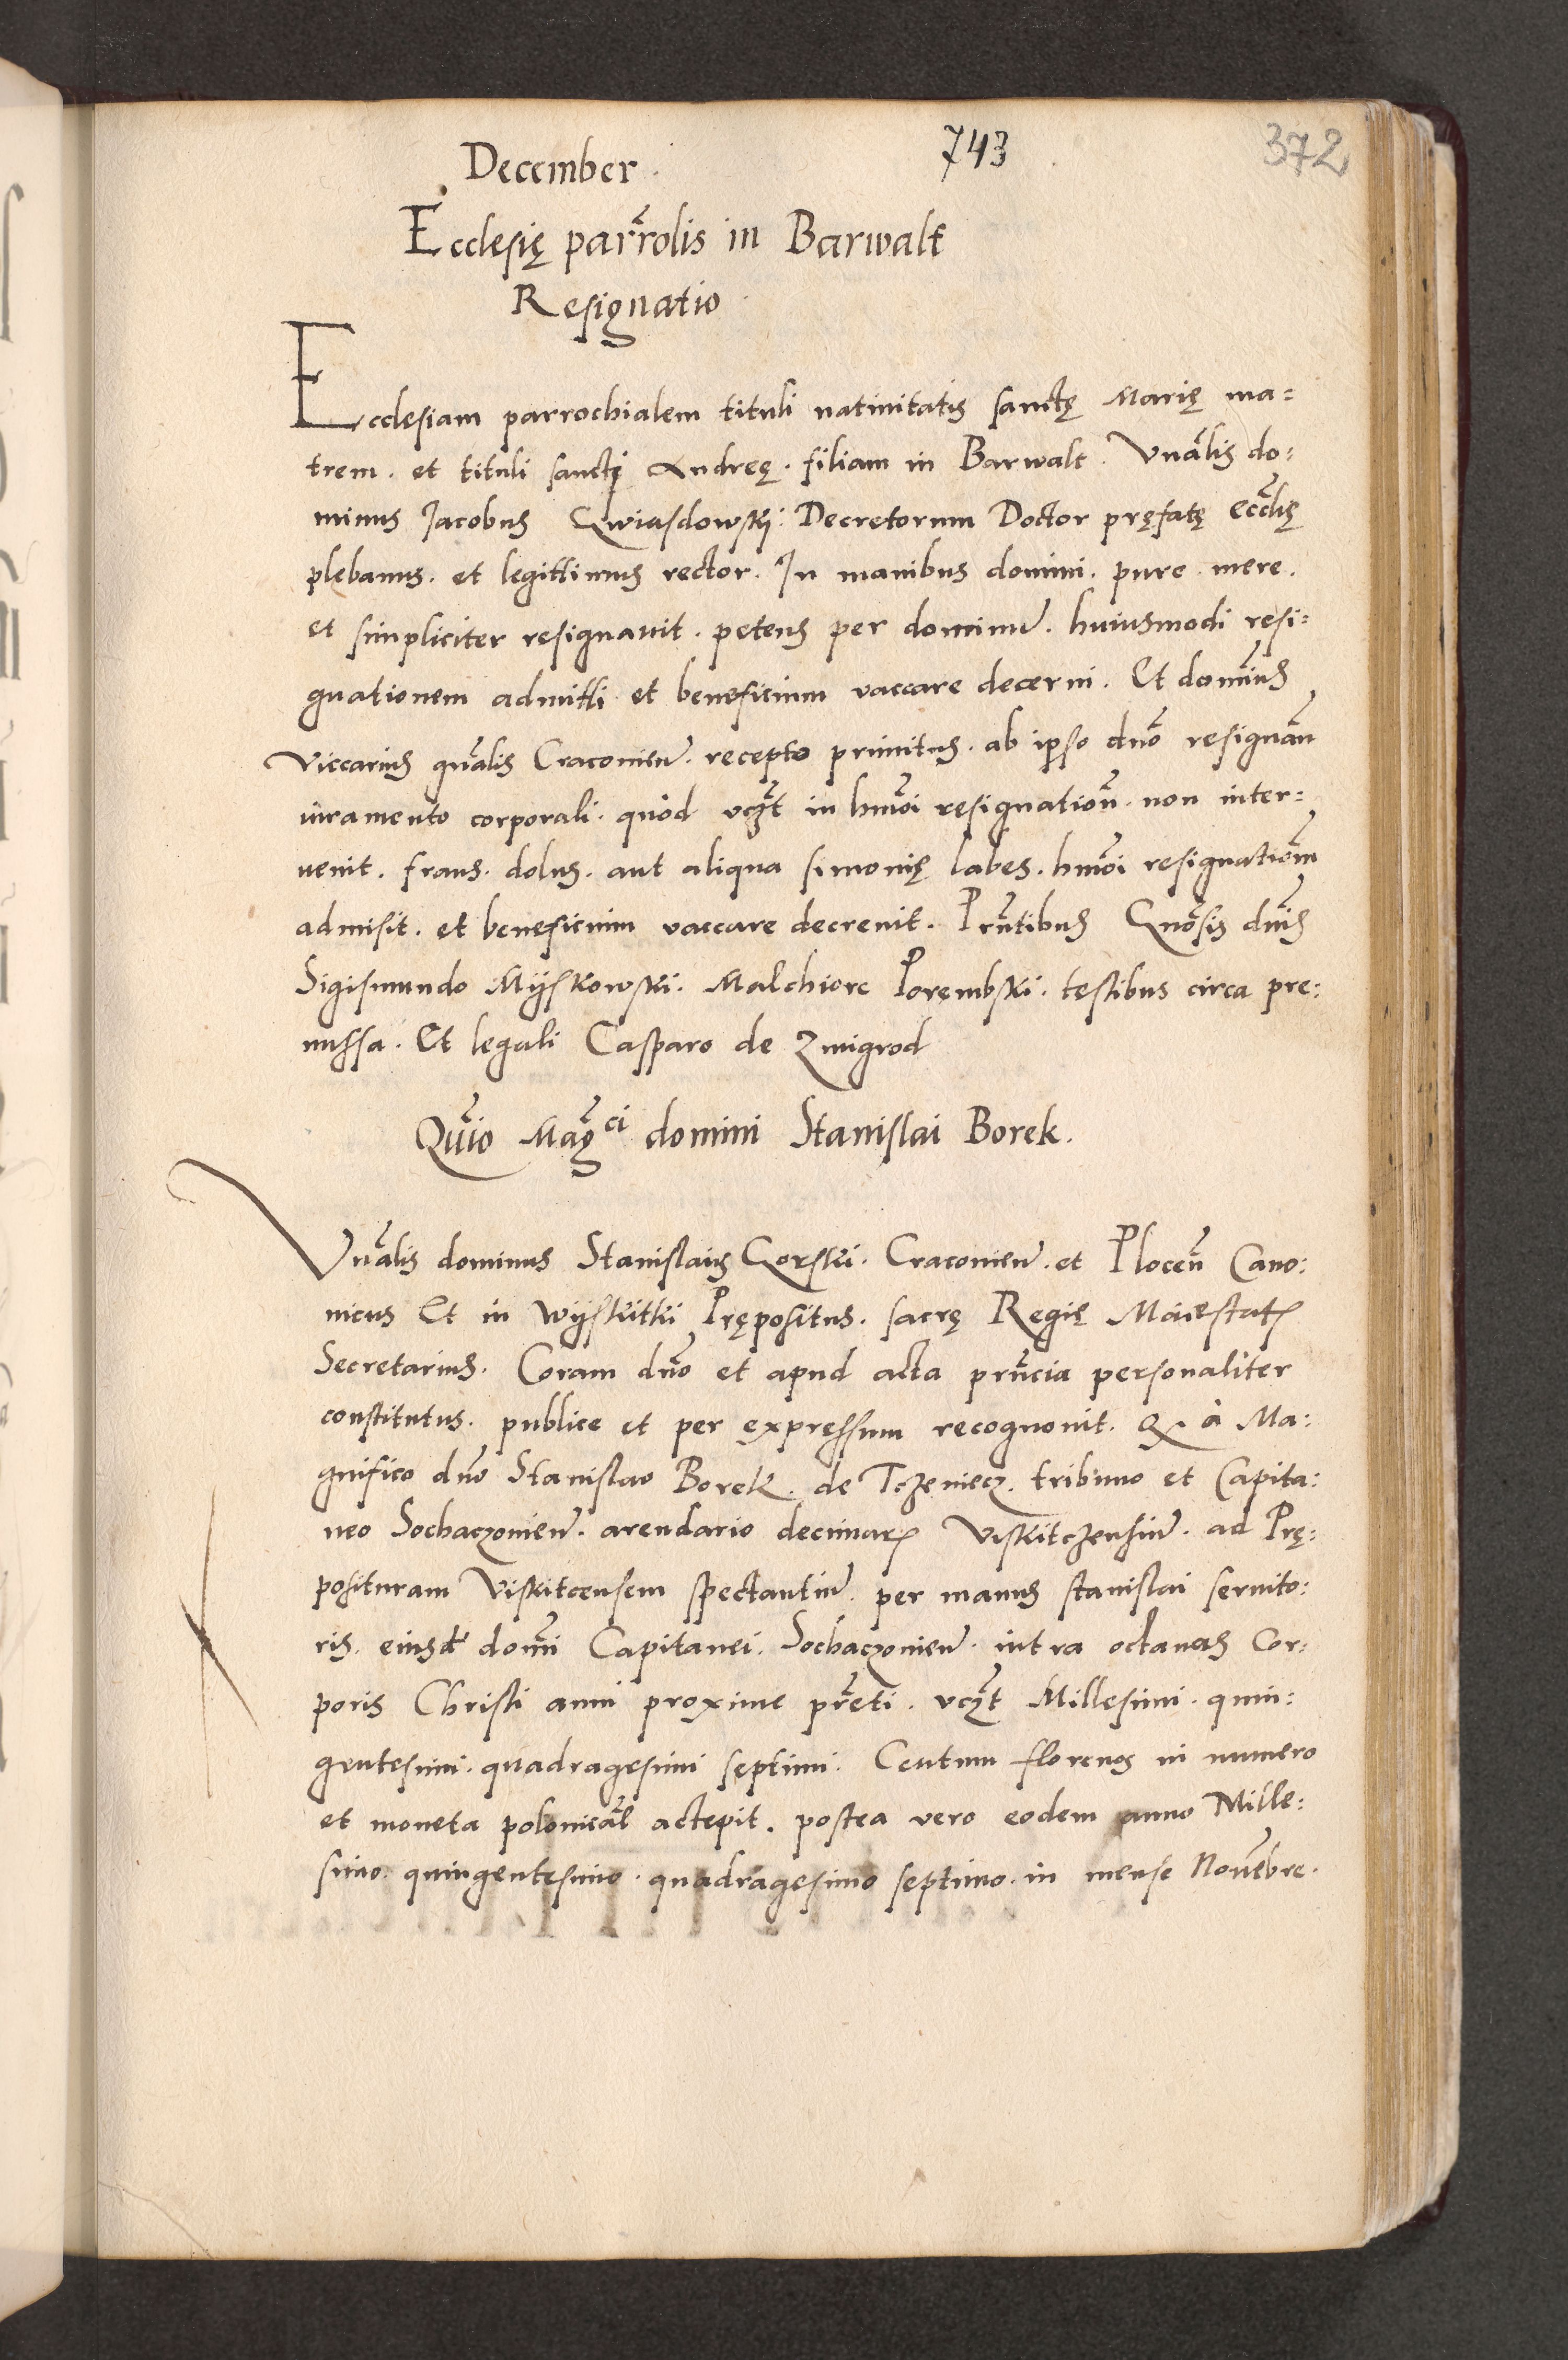 December
743
372
Ecclesię parr̃olis in Barwalt
Resignatio
Ecclesiam parrochialem tituli natiuitatis sanctę Marię ma=
trem. et tituli sancti Andreę. filiam in Barwalt. Vnãlis do:
minus Jacobus Gwiasdowskij. Decretorum Doctor pręfatę ecclię
plebanus. et legittimus rector. In manibus domini. pure. mere.
et simpliciter resignauit. petens per dominum. huiusmodi resi:
gnationem admitti et beneficium vaccare decerni. Et dominus
Viccarius gñalis Cracouien. recepto primitus. ab ipso dño resignañ
iuramento corporali. quòd vczt in hmõi resignatioñ. non inter:
uenit. fraus. dolus. aut aliqua simonię labes. hmõi resignationẽ
admisit. et beneficium vaccare decreuit. Prñtibus Gnõsis dñis
Sigismundo Mÿskowski. Malchiore Porembski. testibus circa pre:
missa. Et legali Casparo de Zmigrod
Quĩo Mag̃ci domini Stanislai Borek.
Vnãlis dominus Stanislaus Gorski. Cracouien. et Plocen̄ Cano:
nicus Et in Wÿskitki Prępositus. sacrę Regię Maiestatis
Secretarius. Coram dño et apud acta prñcia personaliter
constitutus. publice et per expressum recognouit. Q à Ma:
gnifico dño Stanislao Borek. de Tczeniecz. tribuno et Capita:
neo Sochaczouien. arendario decimarum Viskitczensium. ad Prę:
posituram Viskitcensem spectantium. per manus stanislai seruito:
ris. eiusd̃ domñi Capitanei. Sochaczouien. intra octauas Cor:
poris Christi anni proxime prẽti. vczt Millesimi. quin:
gentesimi. quadragesimi septimi. Centum florenos in numero
et moneta polonicãl accepit. postea vero eodem anno Mille:
simo. quingentesimo. quadragesimo septimo. in mense Nouẽbre.